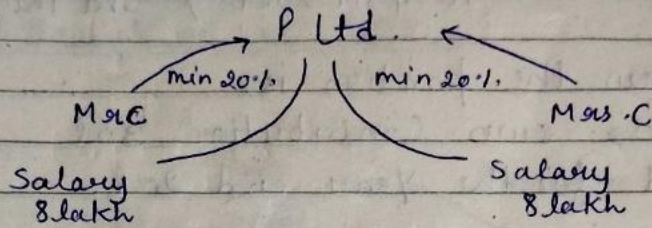 P Ltd.
min 20%. min 20%.
Mr C Mrs. C
Salary Salary
8 lakh 8 lakh